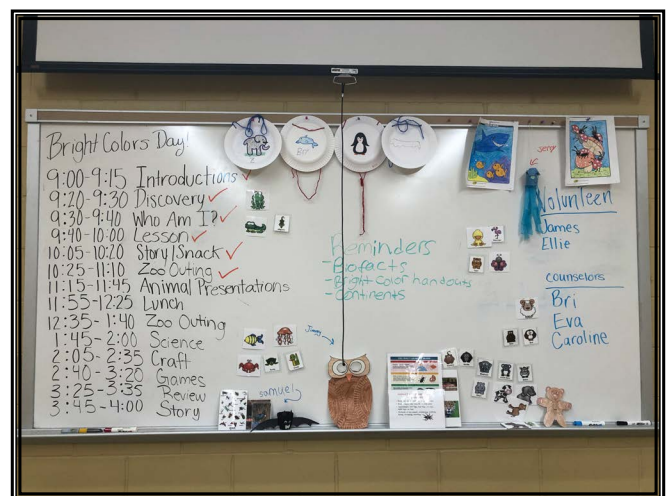 Bright Colors Day!
9:00-9:15 Introductions ✓
9:20-9:30 Discovery ✓
9:30-9:40 Who Am I? ✓
9:40-10:00 Lesson ✓
10:05-10:20 Story/Snack ✓
10:25-11:10 Zoo Outing ✓
11:15-11:45 Animal Presentations
11:55-12:25 Lunch
12:35-1:40 Zoo Outing
1:45-2:00 Science
2:05-2:35 Craft
2:40-3:20 Games
3:25-3:35 Review
3:45-4:00 Story
Bri
Reminders
-Biofacts
-Bright Color handouts
-Continents
samuel
Volunteer
James
Ellie
counselors
Bri
Eva
Caroline